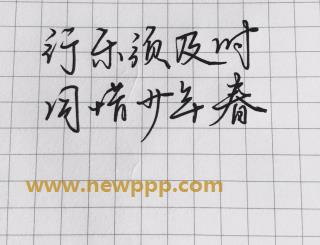 行乐须及时
同惜少年春
www.newppp.com